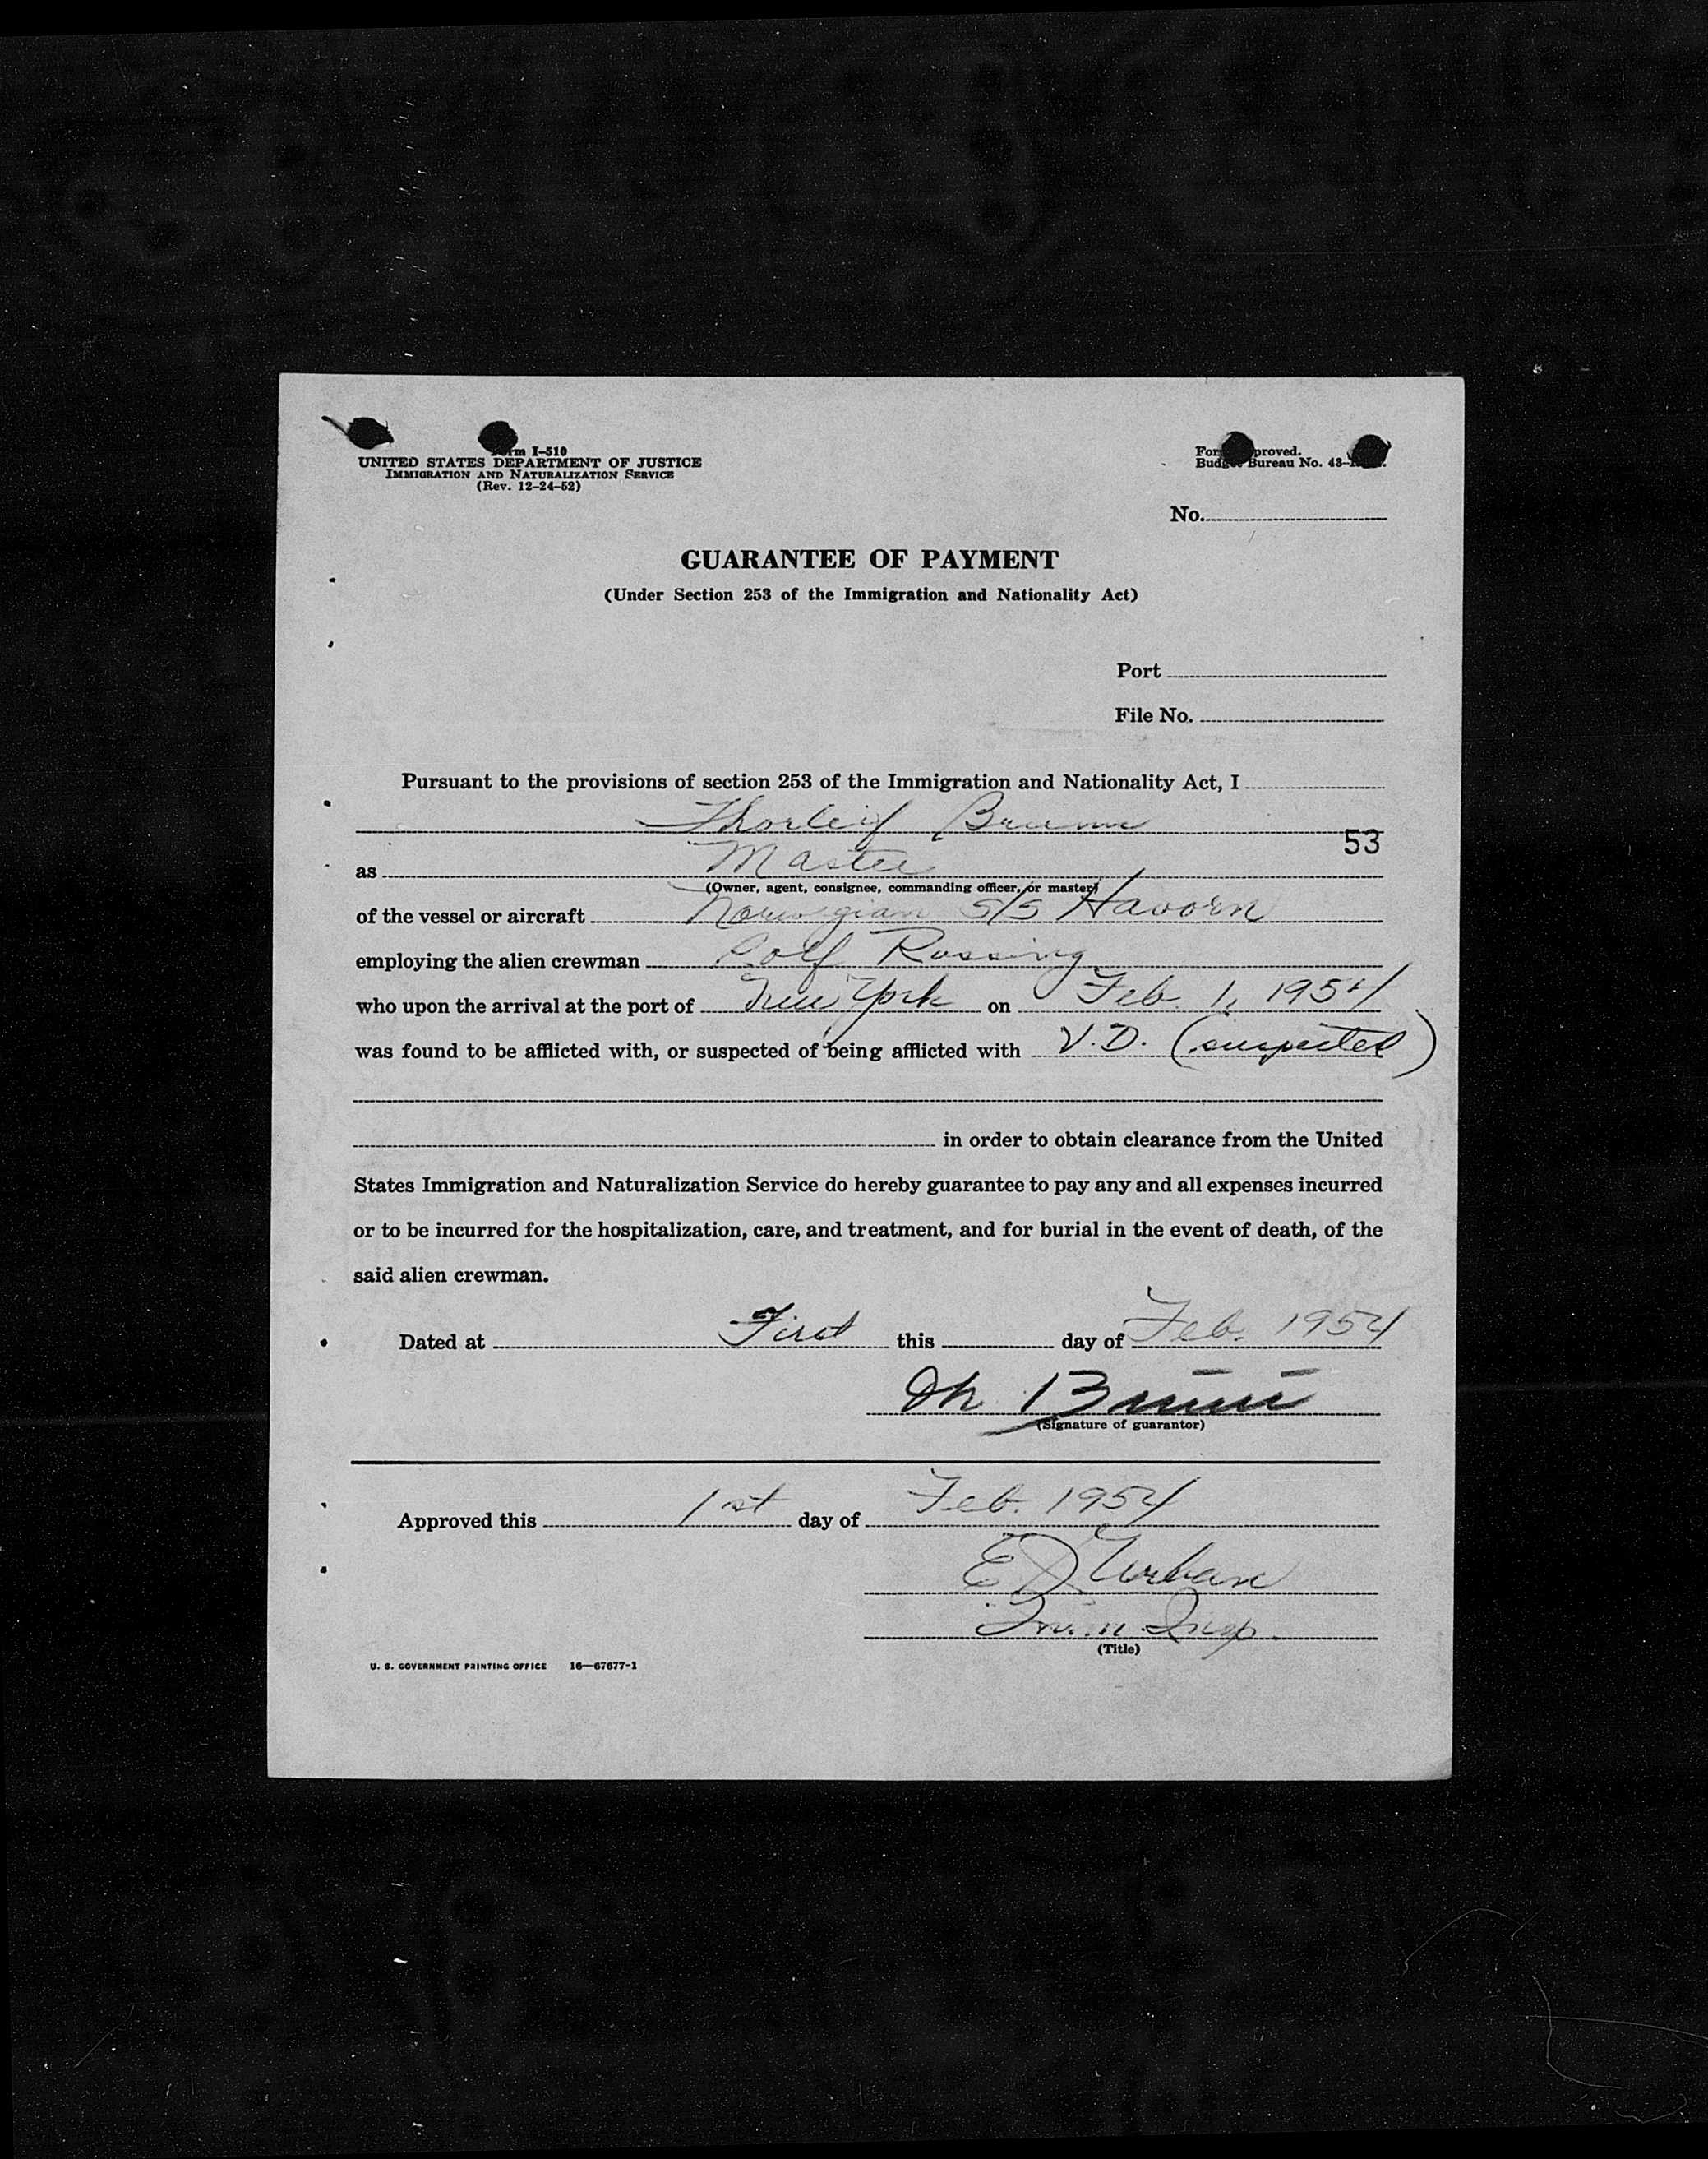 Form I-510
UNITED STATES DEPARTMENT OF JUSTICE
IMMIGRATION AND NATURALIZATION SERVICE
(Rev. 12-24-52)
Form Approved.
Budget Bureau No. 43-
No.
GUARANTEE OF PAYMENT
(Under Section 253 of the Immigration and Nationality Act)
Port
File No.
Pursuant to the provisions of section 253 of the Immigration and Nationality Act, I
Thorleif
53
as Master
(Owner, agent, consignee, commanding officer, or master)
of the vessel or aircraft Norwegian S/S Havorn
employing the alien crewman Rolf Rossing
who upon the arrival at the port of New York on Feb. 1, 1954
was found to be afflicted with, or suspected of being afflicted with V.D. (suspected)
in order to obtain clearance from the United
States Immigration and Naturalization Service do hereby guarantee to pay any and all expenses incurred
or to be incurred for the hospitalization, care, and treatment, and for burial in the event of death, of the
said alien crewman.
Dated at First this day of Feb. 1954
(Signature of guarantor)
Approved this 1st day of Feb. 1954
E J Urban
Imm. Insp.
(Title)
U. S. GOVERNMENT PRINTING OFFICE 16-67677-1